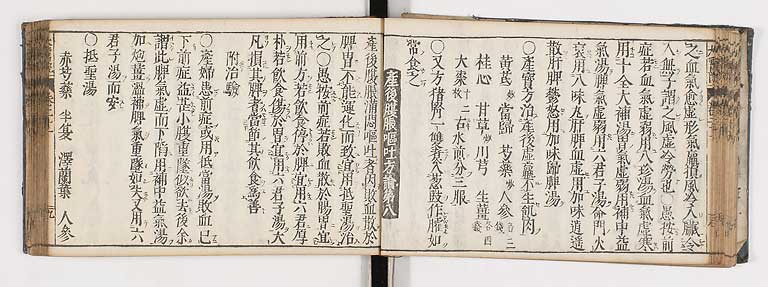 之血氣愈虛形氣羸損風冷入臟令
人無子謂之風虛冷勞也○愚按前
症若血氣虛弱用八珍湯血氣虛寒
用十全大補湯胃氣虛弱用補中益
氣湯脾氣虛弱用六君子湯命門火
衰用八味丸肝脾血虛用加味逍遙
散肝脾鬱怒用加味歸脾湯
○產寶方治產後虛羸不生飢肉
黃芪 當歸 芍藥 人參
桂心 甘草 川芎 生薑
大棗 右水煎分三服
○又方猪腎一雙煮入葱豉作臛如
常食之
產後腹脹嘔吐方論第八
產後腹脹滿悶嘔吐者因敗血散於
脾胃不能運化而致宜用抵聖湯治
之○愚按前症若敗血散於腸胃宜
用前方若飲食停於脾宜用六君厚
朴若飲食傷於胃宜用六君子湯大
凡損其脾者當節其飲食爲善
附治驗
○產婦患前症或用抵當湯敗血已
下前症益甚小腹重墜似欲去後余
謂此脾氣虛而下陷用補中益氣湯
加炮薑溫補脾氣重墜如失又用六
君子湯而安
○抵聖湯
赤芍藥 半夏 澤蘭葉 人參